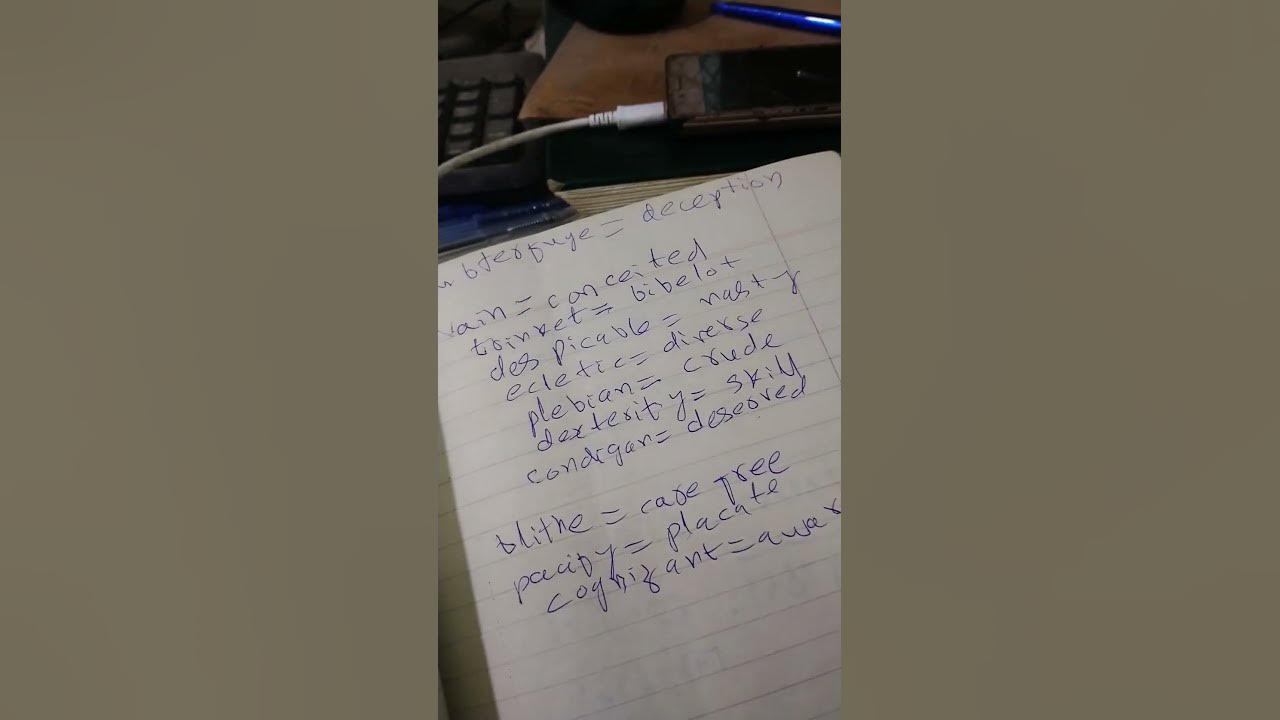 ubterfuge = deception
vain = conceited
trinket = bibelot
despicable = nasty
ecletic = diverse
plebian = crude
dexterity = skill
condigan = deserved
blithe = care free
pacify = placate
cognizant = awar